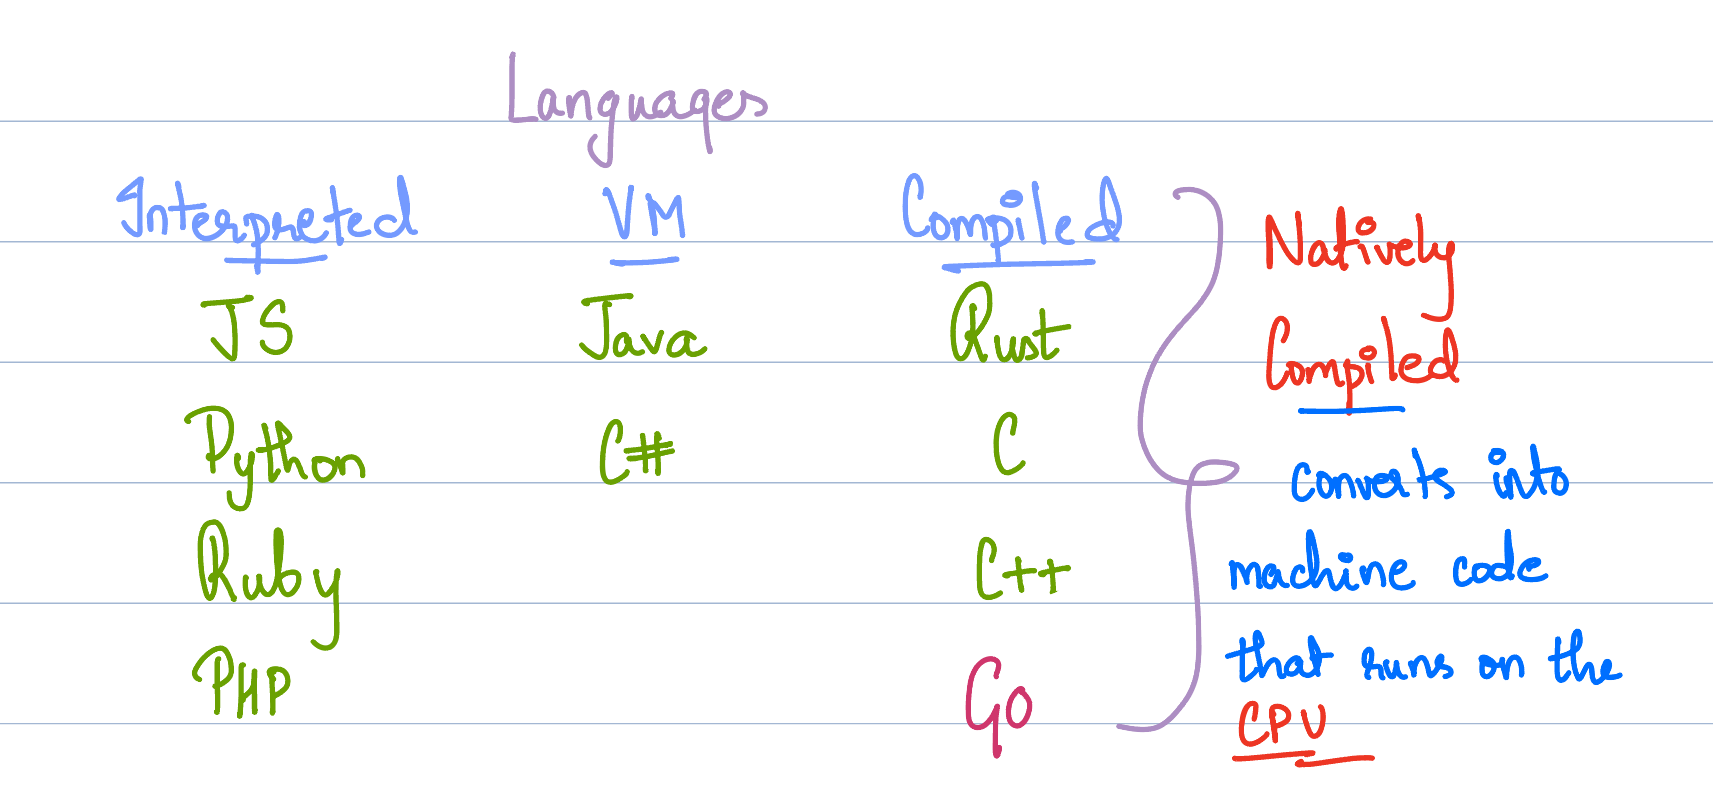 Languages
Interpreted VM Compiled
JS Java Rust
Python C# C
Ruby C++
PHP Go
Natively
Compiled
converts into
machine code
that runs on the
CPU